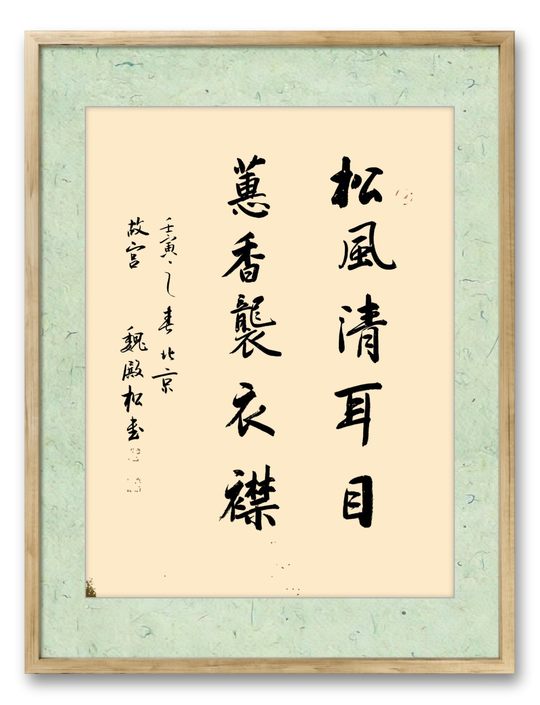 松風清耳目
蕙香襲衣襟
壬寅之春北京
故宫 魏殿松书